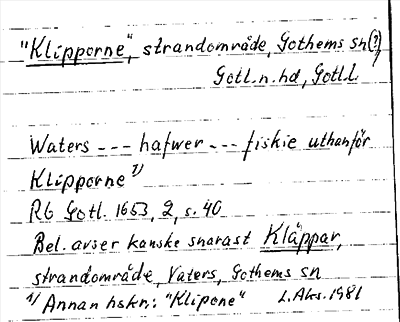 "Klipporne", strandområde, Gothems sn(?)
Gotl.n.hd, Gotl.l.
Waters --- hafwer --- fiskie uthanför
Klipporne 1)
Rb Gotl. 1653, 2, s. 40
Bel. avser kanske snarast Kläppar,
strandområde, Vaters, Gothems sn
1) Annan hskr: "Klipone" L.Aks. 1981